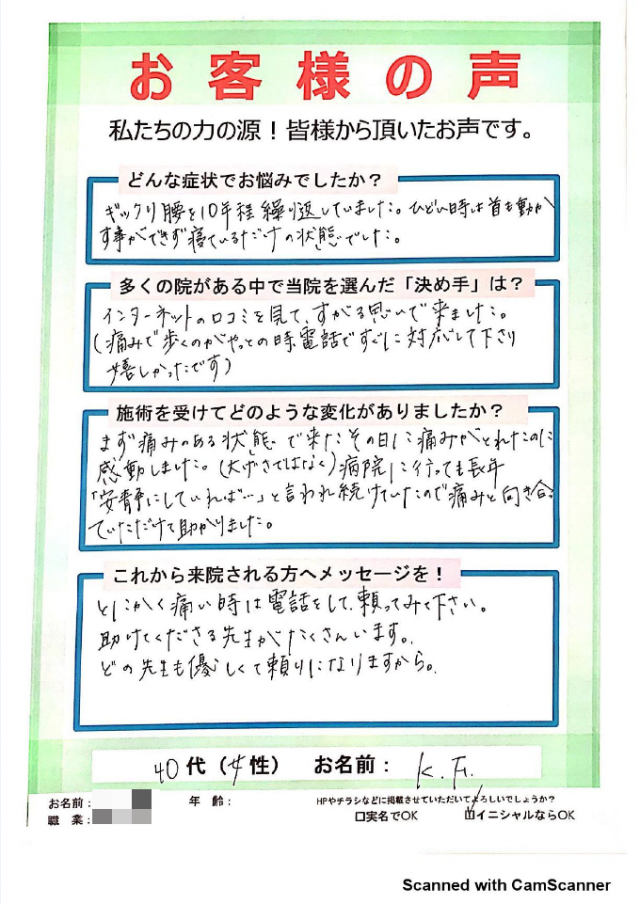 お客様の声
私たちの力の源！皆様から頂いたお声です。
どんな症状でお悩みでしたか？
ギックリ腰を10年程繰り返していました。ひどい時は首も動か
す事ができず寝ているだけの状態でした。
多くの院がある中で当院を選んだ「決め手」は？
インターネットの口コミを見て、すがる思いで来ました。
(痛みで歩くのがやっとの時、電話ですぐに対応して下さり
嬉しかったです)
施術を受けてどのような変化がありましたか？
まず痛みのある状態で来たその日に痛みがとれたのに
感動しました。(大げさではなく)病院に行っても長年
「安静にしていれば…」と言われ続けていたので痛みと向き合っ
ていただけて助かりました。
これから来院される方へメッセージを！
とにかく痛い時は電話をして、頼ってみて下さい。
助けてくださる先生がたくさんいます。
どの先生も優しくて頼りになりますから。
40代（女性） お名前： K.F.
お名前： 年 齢： HPやチラシなどに掲載させていただいてよろしいでしょうか？
職 業： 口実名でOK ☑イニシャルならOK
Scanned with CamScanner